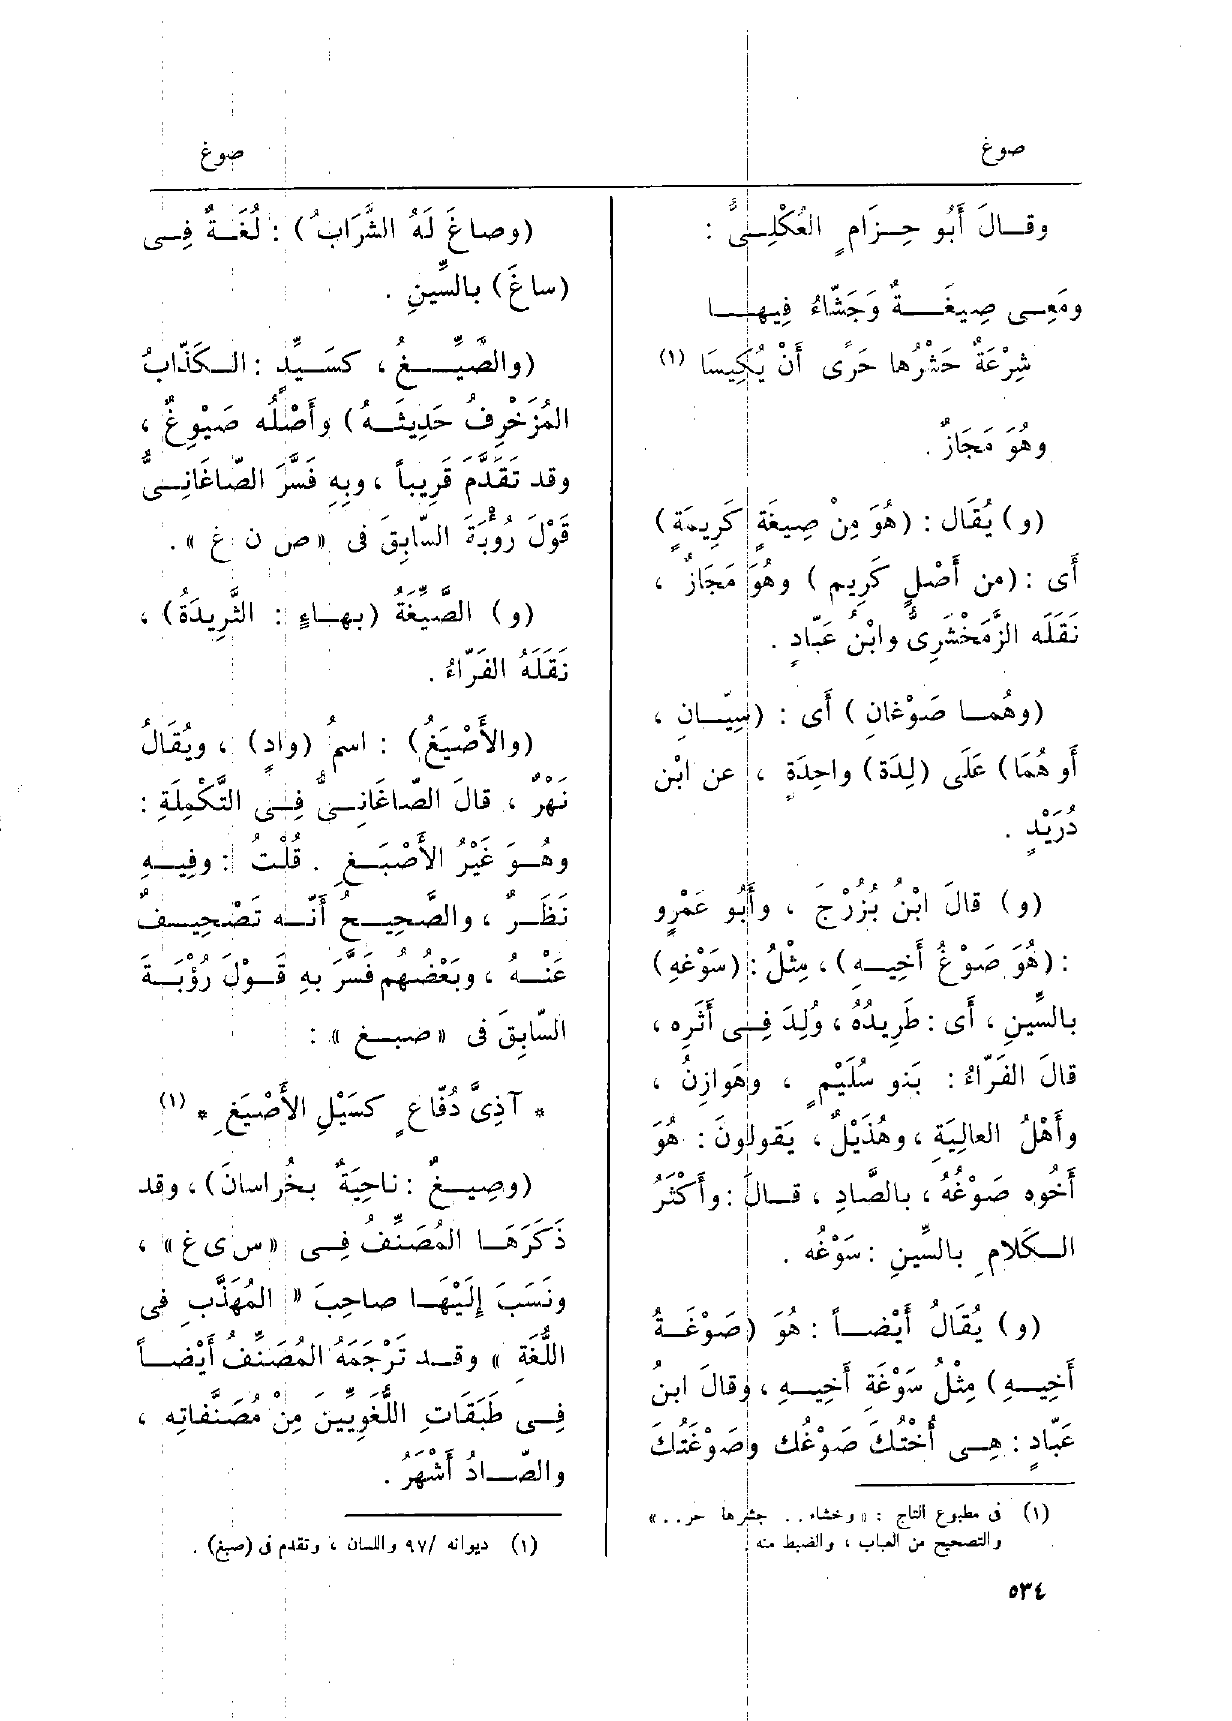 صوغ
صوغ
وقــالَ أَبُو حِــزَامٍ العُكْلِــىُّ :
ومَعِــى صِيغَــــةٌ وَجَشَّاءُ فِيهــا
شِرْعَةٌ حَشْرُها حَرًى أَنْ يُكِيسَا (١)
وهُوَ مَجَازٌ .
(و) يُقَال : (هُوَ مِنْ صِيغَةٍ كَرِيمَةٍ)
أَى : (من أَصْلٍ كَرِيمٍ) وهُوَ مَجَازٌ ،
نَقَلَه الزَّمَخْشَرِىُّ وابْنُ عَبّادٍ .
(وهُمــا صَوْغانِ) أَى : (سِيّــانِ ،
أَو هُمَا) عَلَى (لِدَة) واحِدَةٍ ، عن ابْنِ
دُرَيْدٍ .
(و) قالَ ابْنُ بُزُرْجَ ، وأَبُو عَمْرٍو
: (هُوَ صَوْغُ أَخِيــهِ) ، مِثْلُ : (سَوْغِهِ)
بالسِّينِ ، أَى : طَرِيدُهُ ، وُلِدَ فِــى أَثَرِه ،
قالَ الفَرّاءُ : بَنو سُلَيْمٍ ، وهَوازِنُ ،
وأَهْلُ العالِيَةِ ، وهُذَيْلٌ ، يَقولونَ : هُوَ
أَخُوه صَوْغُهُ ، بالصَّادِ ، قــالَ : وأَكْثَرُ
الــكَلامِ بالسِّينِ : سَوْغُه .
(و) يُقَالُ أَيْضــاً : هُوَ (صَوْغَــةُ
أَخِيــهِ) مِثْلُ سَوْغَةِ أَخِيــهِ ، وقالَ ابنُ
عَبّادٍ : هِــى أُخْتُكَ صَوْغُك وصَوْغَتُكَ
(١) فى مطبوع التاج : « وخشاء . . جشرها حر . . »
والتصحيح من العباب ، والضبط منه .
٥٣٤
(وصاغَ لَهُ الشَّرَابُ) : لُغَــةٌ فِــى
(ساغَ) بالسِّينِ .
(والصَّيِّــــغُ ، كسَــيِّدٍ : الــكَذّابُ
المُزَخْرِفُ حَدِيثَــهُ) وأَصْلُه صَيْوِغٌ ،
وقد تَقَدَّمَ قَرِيباً ، وبِهِ فَسَّرَ الصّاغَانِــىُّ
قَوْلَ رُؤْبَةَ السّابِقَ فى « ص ن غ » .
(و) الصَّيِّغَةُ (بهــاءٍ : الثَّرِيدَةُ) ،
نَقَلَهُ الفَرّاءُ .
(والأَصْيَغُ) : اسمُ (وادٍ) ، ويُقَالُ
نَهْرٌ ، قالَ الصّاغَانِــىُّ فِــى التَّكْمِلَةِ :
وهُــوَ غَيْرُ الأَصْبَــغِ . قُلْتُ : وفِيــهِ
نَظَرٌ ، والصَّحِيــحُ أَنّــه تَصْحِيــفٌ
عَنْــهُ ، وبَعْضُهم فَسَّرَ بهِ قَــوْلَ رُؤْبَــةَ
السّابِقَ فى « صبــغ » :
* آذِىَّ دُفّاعٍ كسَيْلِ الأَصْيَغِ * (١)
(وصِيــغٌ : ناحِيَةٌ بخُراسانَ) ، وقد
ذَكَرَهَــا المُصَنِّفُ فِــى « س ى غ » ،
ونَسَبَ إِلَيْهَــا صاحِبَ « المُهَذَّبِ فى
اللُّغَةِ » وقــد تَرْجَمَهُ المُصَنِّفُ أَيْضــاً
فِــى طَبَقَاتِ اللُّغَوِيِّينَ مِنْ مُصَنَّفاتِه ،
والصّــادُ أَشْهَرُ .
(١) ديوانه /٩٧ واللسان ، وتقدم فى (صبغ) .